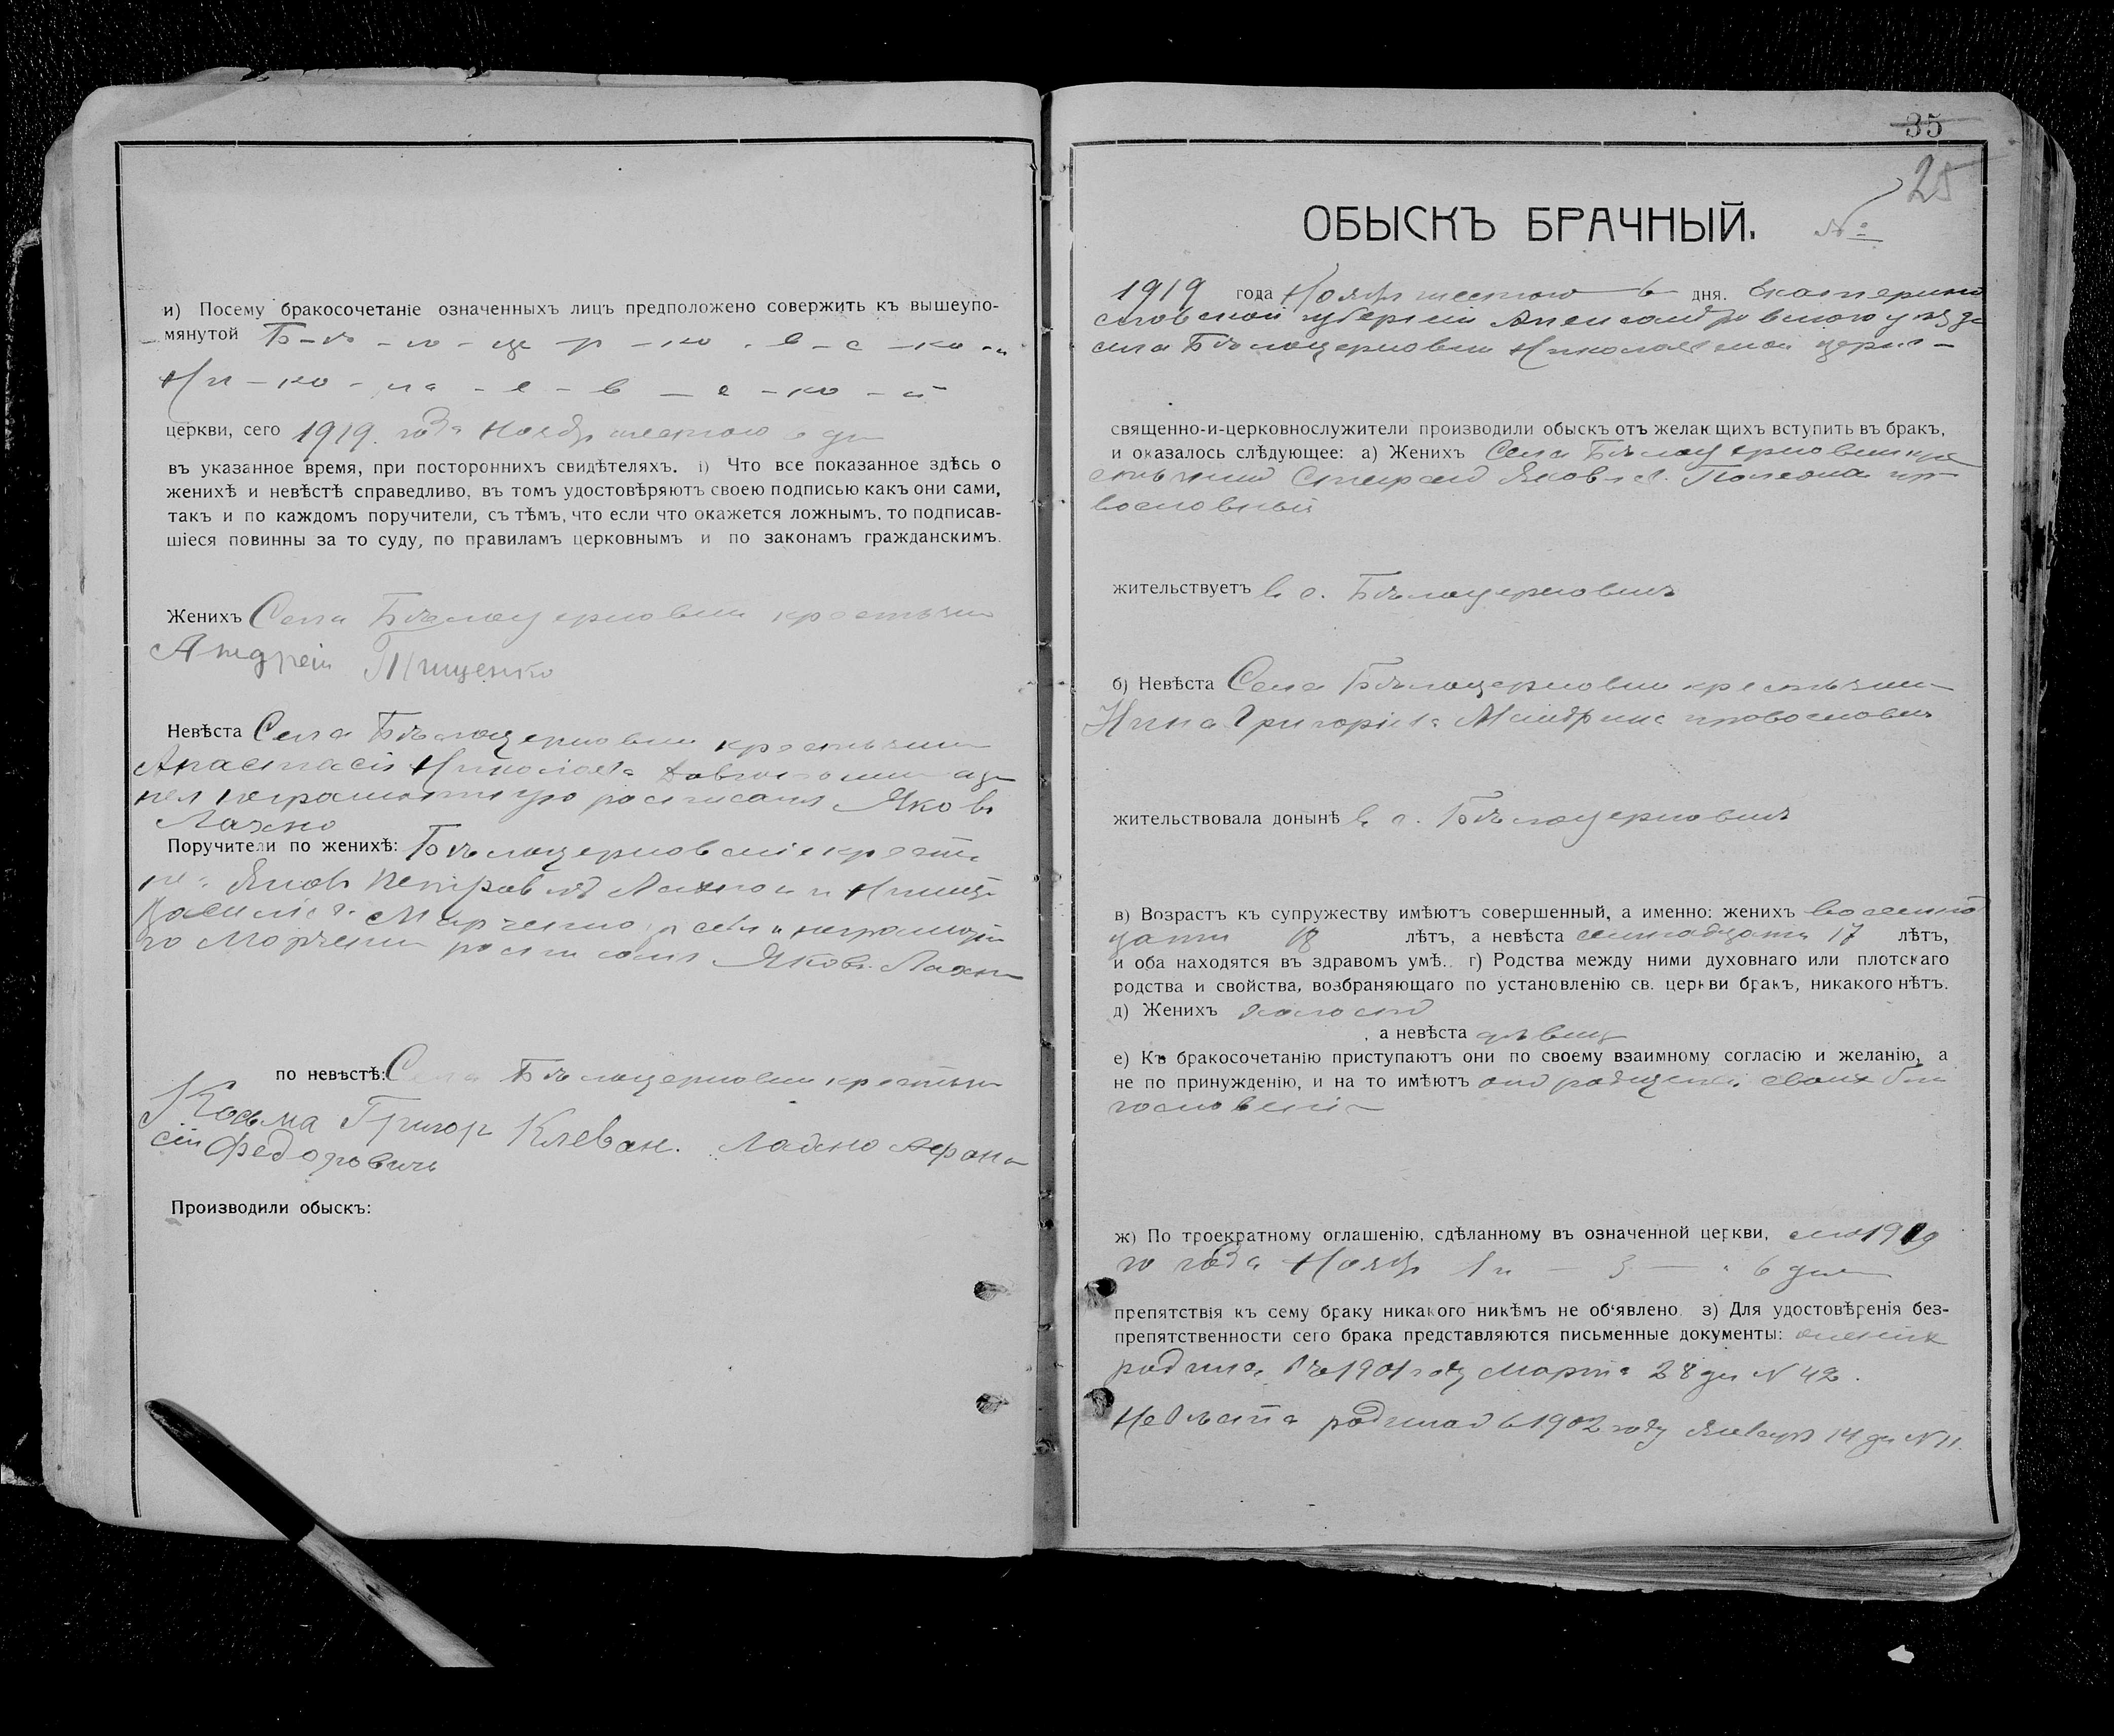 и) Посему бракосочетаніе означенныхъ лицъ предположено совержить къ вышеупо-
мянутой Б-ѣ-ло-це-р-ко-в-с-ко-й
Ни-ко-ла-е-в-с-ко-й
церкви, сего 1919 года Ноябр шестого 6 дн
въ указанное время, при постороннихъ свидѣтеляхъ. і) Что все показанное здѣсь о
женихѣ и невѣстѣ справедливо, въ томъ удостовѣряютъ своею подписью какъ они сами,
такъ и по каждомъ поручители, съ тѣмъ, что если что окажется ложнымъ, то подписав-
шіеся повинны за то суду, по правиламъ церковнымъ и по законамъ гражданскимъ.
Женихъ Села Бѣлоцерковки крестьян
Андреій Тищенко
Невѣста Села Бѣлоцерковки крестьян
Анастасія Николаева
неграмотную росписался Яковъ
Лахно
Поручители по женихѣ: Бѣлоцерковскіе крестя
не: Яковъ Петровъ Лахно и
Василіев Марченко за себя и неграмот
го Марченк росписался Яковъ Лахно
по невѣстѣ: Села Бѣлоцерковки крестьян
Косьма Григор Клеван. Лахно Афана
сій Федоровичъ
Производили обыскъ:
35
25
ОБЫСКЪ БРАЧНЫЙ. №
1919 года Ноябр шестого 6 дня. Екатерино
славской губерніи Александровского уѣзда
села Бѣлоцерковки Николаевской церкв
священно-и-церковнослужители производили обыскъ отъ желающихъ вступить въ бракъ,
и оказалось слѣдующее: а) Женихъ Села Бѣлоцерковки кре
стьянин Яковлев пра
вославный
жительствуетъ в с. Бѣлоцерковкѣ
б) Невѣста Села Бѣлоцерковки крестьянк
Нина Григоріева православн
жительствовала донынѣ в с. Бѣлоцерковкѣ
в) Возрастъ къ супружеству имѣютъ совершенный, а именно: женихъ восемнад
цати 18 лѣтъ, а невѣста семнадцати 17 лѣтъ,
и оба находятся въ здравомъ умѣ. г) Родства между ними духовнаго или плотскаго
родства и свойства, возбраняющаго по установленію св. церкви бракъ, никакого нѣтъ.
д) Женихъ холостъ
, а невѣста дѣвиц
е) Къ бракосочетанію приступаютъ они по своему взаимному согласію и желанію, а
не по принужденію, и на то имѣютъ от родителей своих бла
гословеніе
ж) По троекратному оглашенію, сдѣланному въ означенной церкви, сего 1919
го года Ноябр 1 и - 3 - и 6 дня
препятствія къ сему браку никакого никѣмъ не об'явлено. з) Для удостовѣренія без-
препятственности сего брака представляются письменные документы: жених
родился въ 1901 году Марта 28 дн N 42.
Невѣста родилась в 1902 году Января 14 дн N 11.